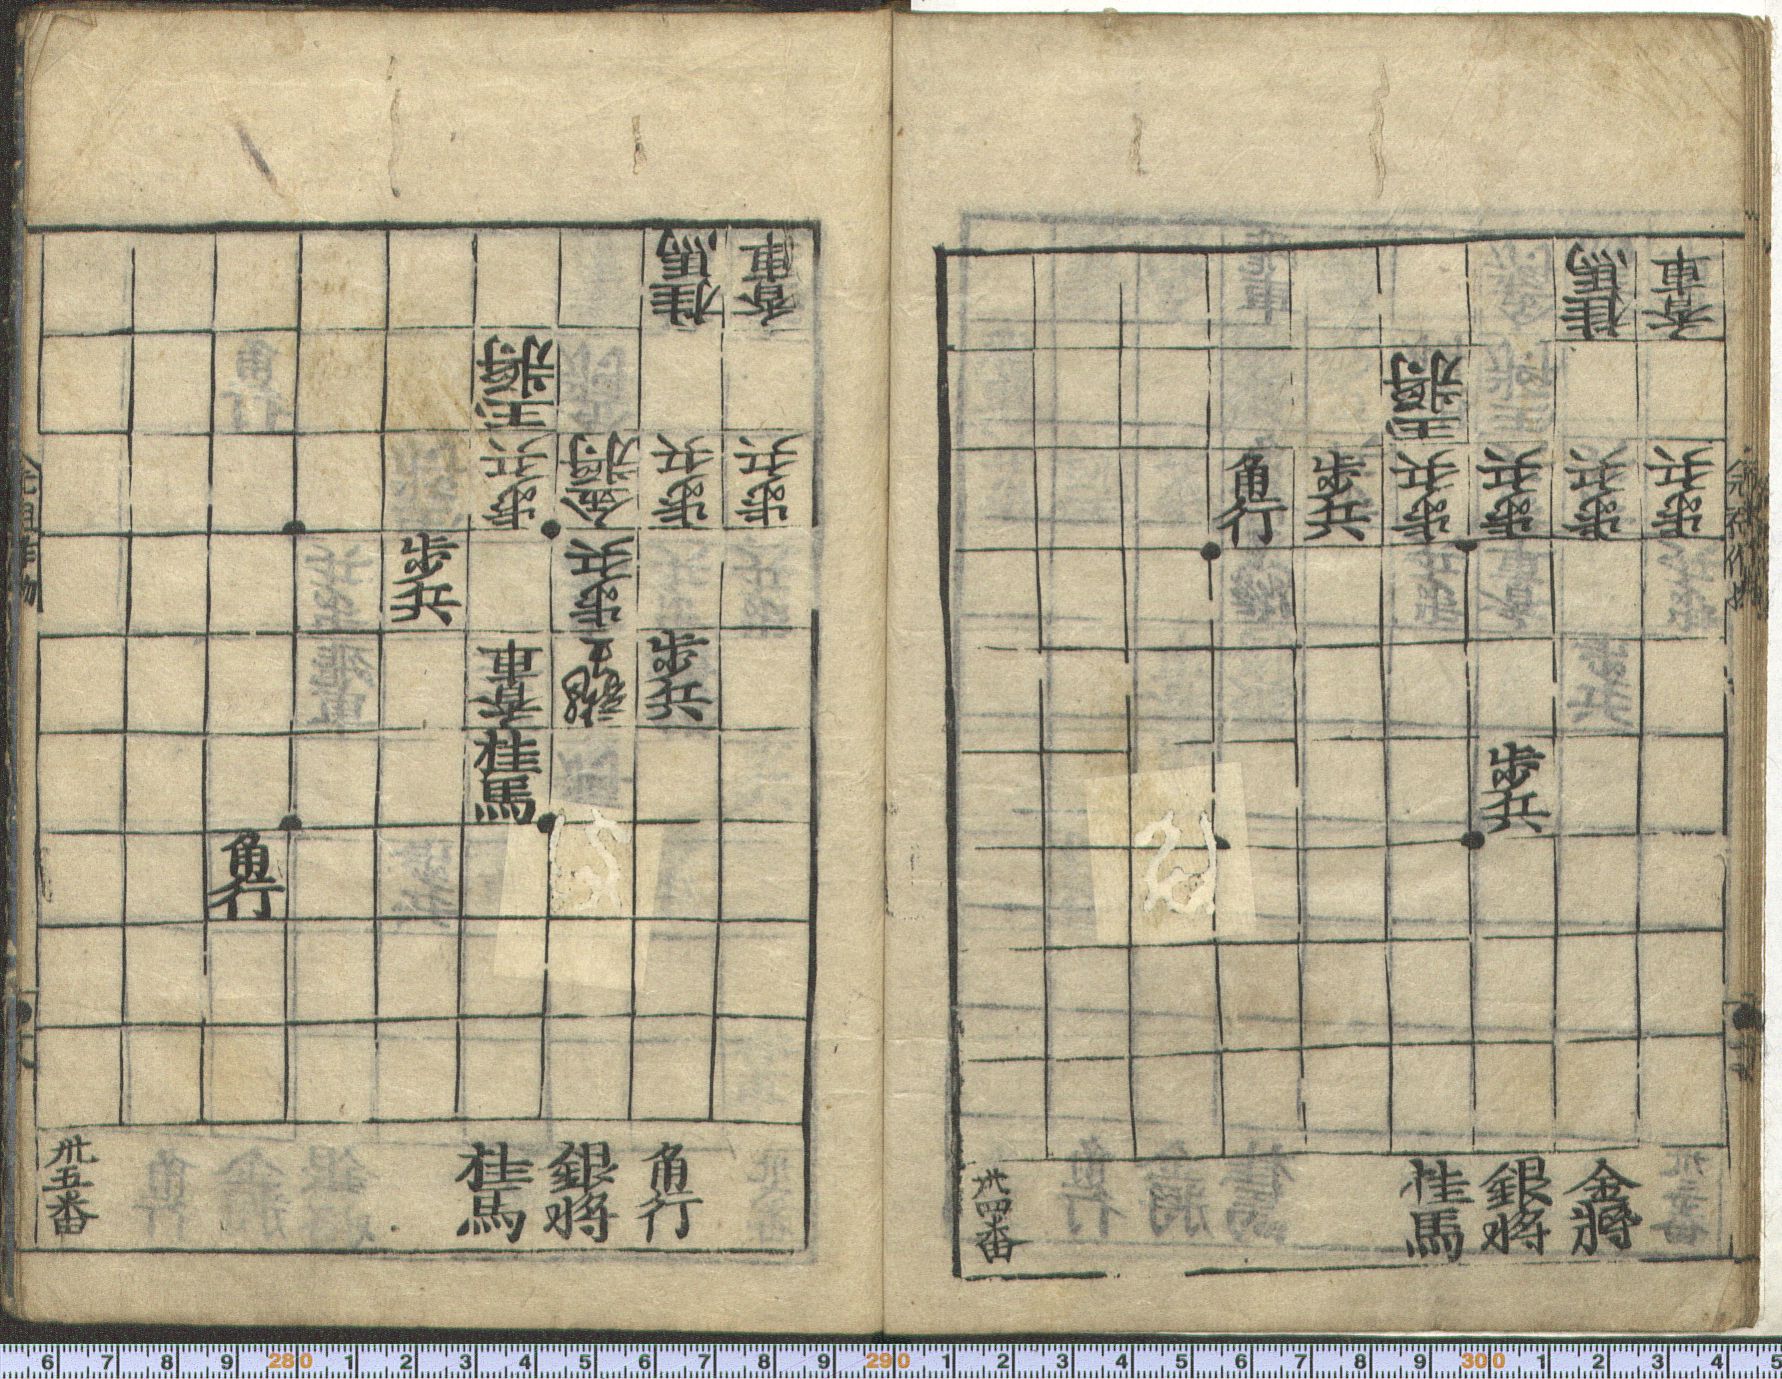 香車
桂馬
玉將
歩兵
歩兵
歩兵
歩兵
歩兵
角行
歩兵
金將
銀將
桂馬
卅四番
香車
桂馬
玉將
歩兵
歩兵
金將
歩兵
歩兵
歩兵
歩兵
香車
桂馬
角行
角行
銀將
桂馬
卅五番
6 7 8 9 280 1 2 3 4 5 6 7 8 9 290 1 2 3 4 5 6 7 8 9 300 1 2 3 4 5